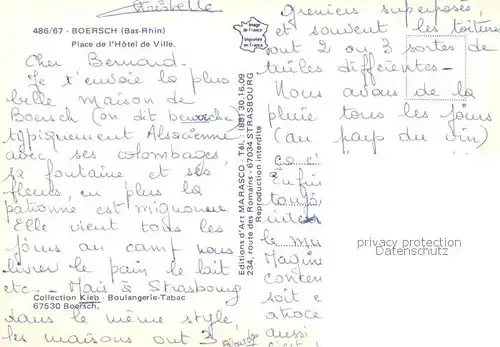 Christelle
486/67 - BOERSCH (Bas-Rhin)
Place de l'Hôtel de Ville.
Image de France
Imprimé en France
Cher Bernard.
Je t'envoie la plus
belle maison de
Boersch (on dit
typiquement Alsacienne
avec ses colombages,
sa fontaine et ses
fleurs, en plus la
patronne est mignonne
Elle vient tous les
jours au camp nous
livrer le pain le lait
etc - Mais à Strasbourg
Collection Kieb - Boulangerie-Tabac
67530 Boersch.
dans le même style,
les maisons ont 3
Editions d'Art MARASCO - Tél. (88) 30.16.09
234, route des Romains - 67034 STRASBOURG
Reproduction interdite
greniers superposés,
et souvent les toitures
ont 2 ou 3 sortes de
tuiles différentes -
Nous avons de la
pluie tous les jours
(au pays du vin)
ça c'
Enfin
le mu
conten
soit e
atroce
aussi
privacy protection
Datenschutz